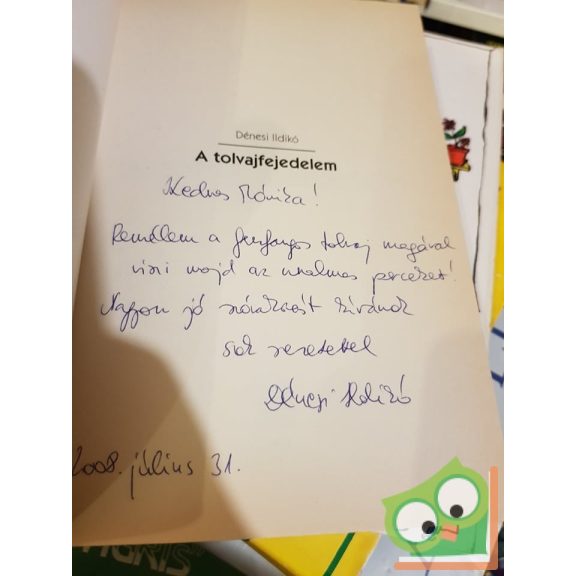 Dénesi Ildikó
A tolvajfejedelem
Kedves Mónika!
Remélem a furfangos tolvaj magával
viszi majd az unalmas perceket!
Nagyon jó szórakozást kívánok
sok szeretettel
Dénesi Ildikó
2008. július 31.